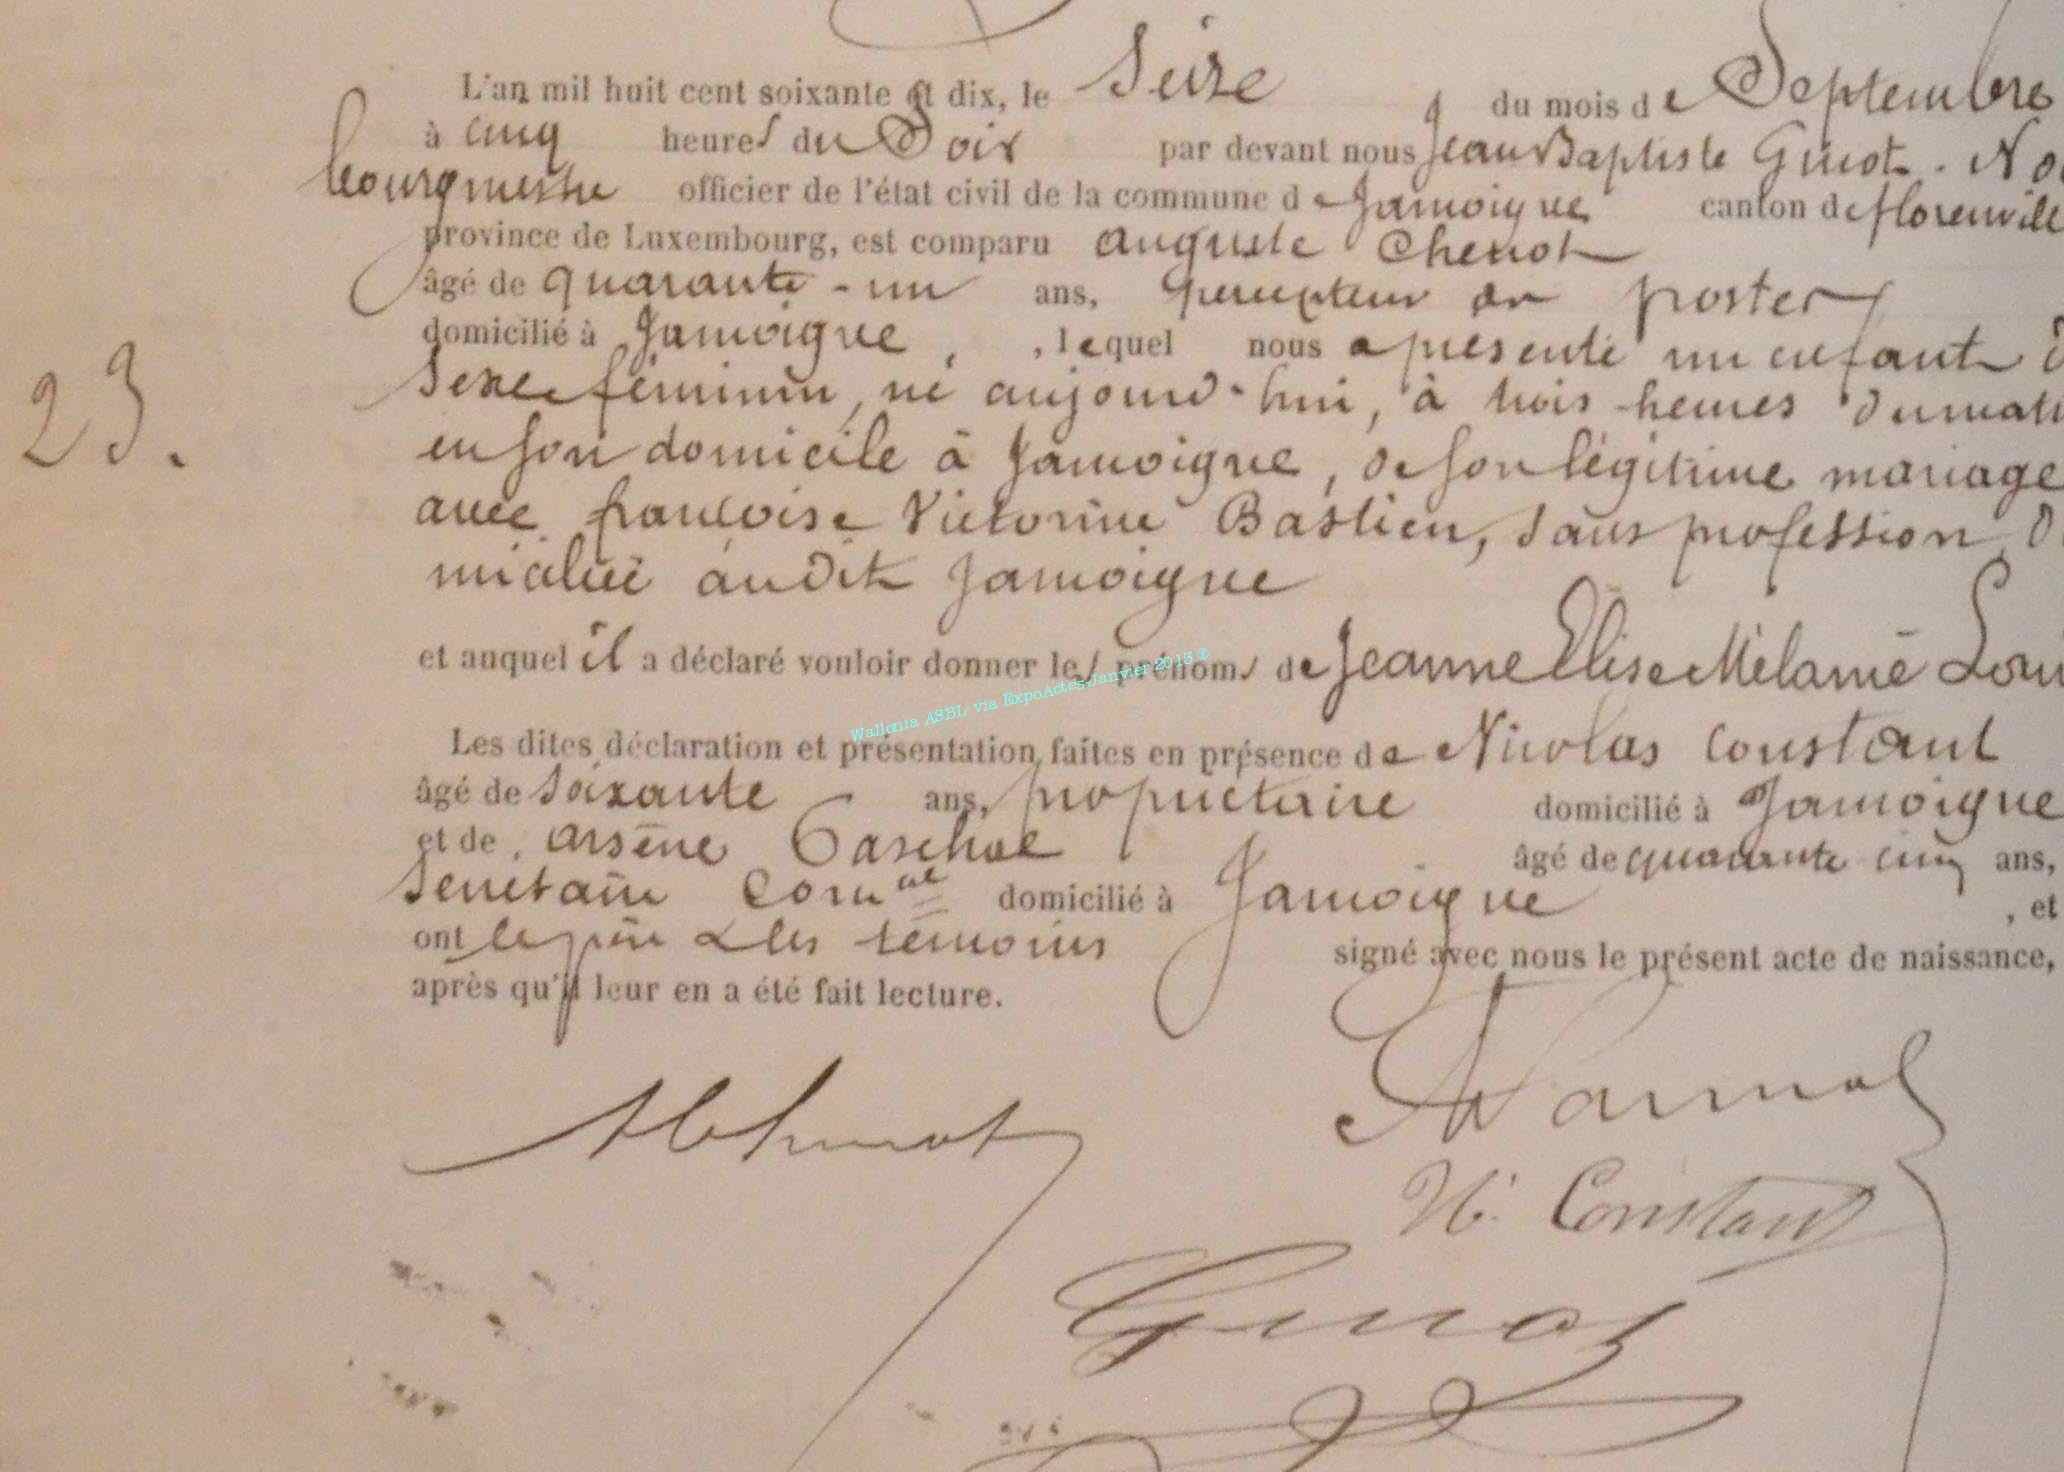 L'an mil huit cent soixante et dix, le Seize du mois de Septembre
à cinq heures du Soir par devant nous Jean Baptiste Guiot. No
bourgmestre officier de l'état civil de la commune de Jamoigne canton de florenville
province de Luxembourg, est comparu auguste Chenot
âgé de quarante-un ans, percepteur des postes
domicilié à Jamoigne, , lequel nous a présenté un enfant d
Sexe féminin, né aujourd'hui, à trois heures du mati
en son domicile à Jamoigne, de son légitime mariage
avec françoise Victorine Bastien, sans profession, do
miciliée audit Jamoigne
23.
et auquel il a déclaré vouloir donner les prénoms de Jeanne Elise Mélanie Lou
Wallonia ASBL via ExpoActes Janvier 2013 ©
Les dites déclaration et présentation faites en présence de Nicolas Constant
âgé de soixante ans, propriétaire domicilié à Jamoigne
et de arsène âgé de quarante cinq ans,
Secrétaire Comal domicilié à Jamoigne , et
ont le père & les témoins signé avec nous le présent acte de naissance,
après qu'il leur en a été fait lecture.
AChenot
N. Constant
Guiot